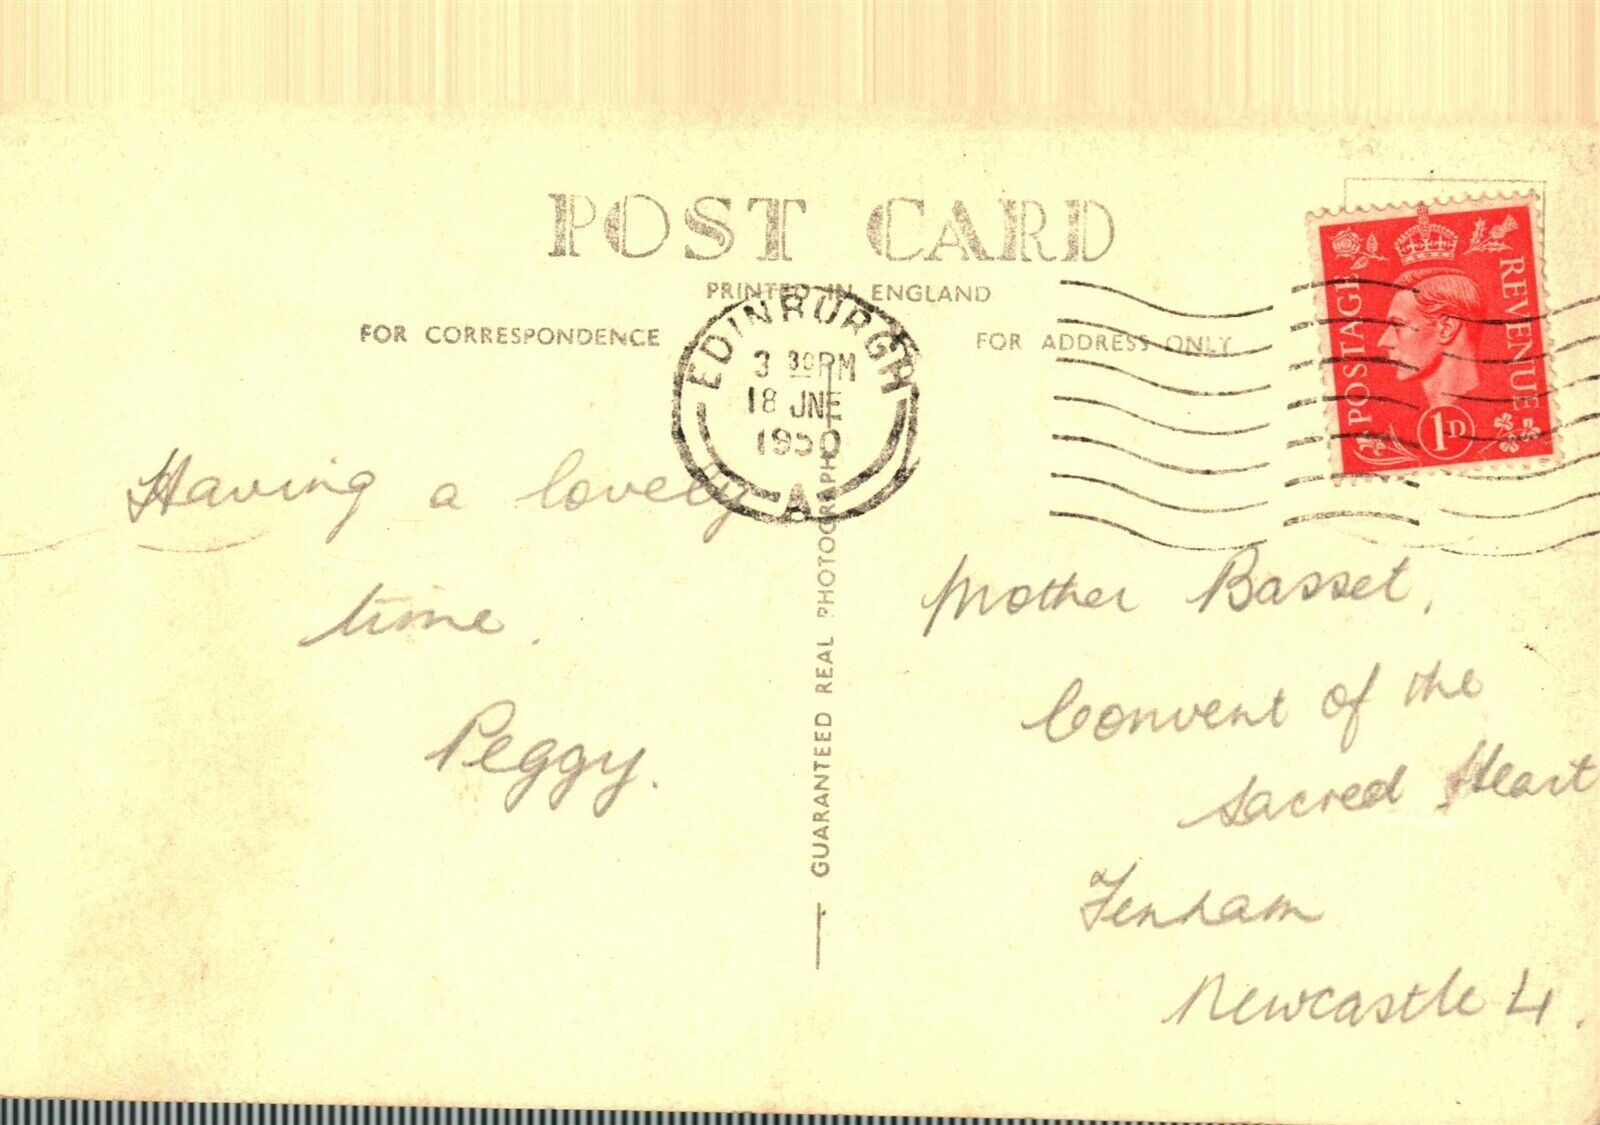 POST CARD
PRINTED IN ENGLAND
FOR CORRESPONDENCE
FOR ADDRESS ONLY
EDINBURGH
3 30PM
18 JNE
1950
A
POSTAGE
REVENUE
1D
Having a lovely
time.
Peggy.
GUARANTEED REAL PHOTOGRAPH
Mother Basset,
Convent of the
Sacred Heart
Fenham
Newcastle 4.